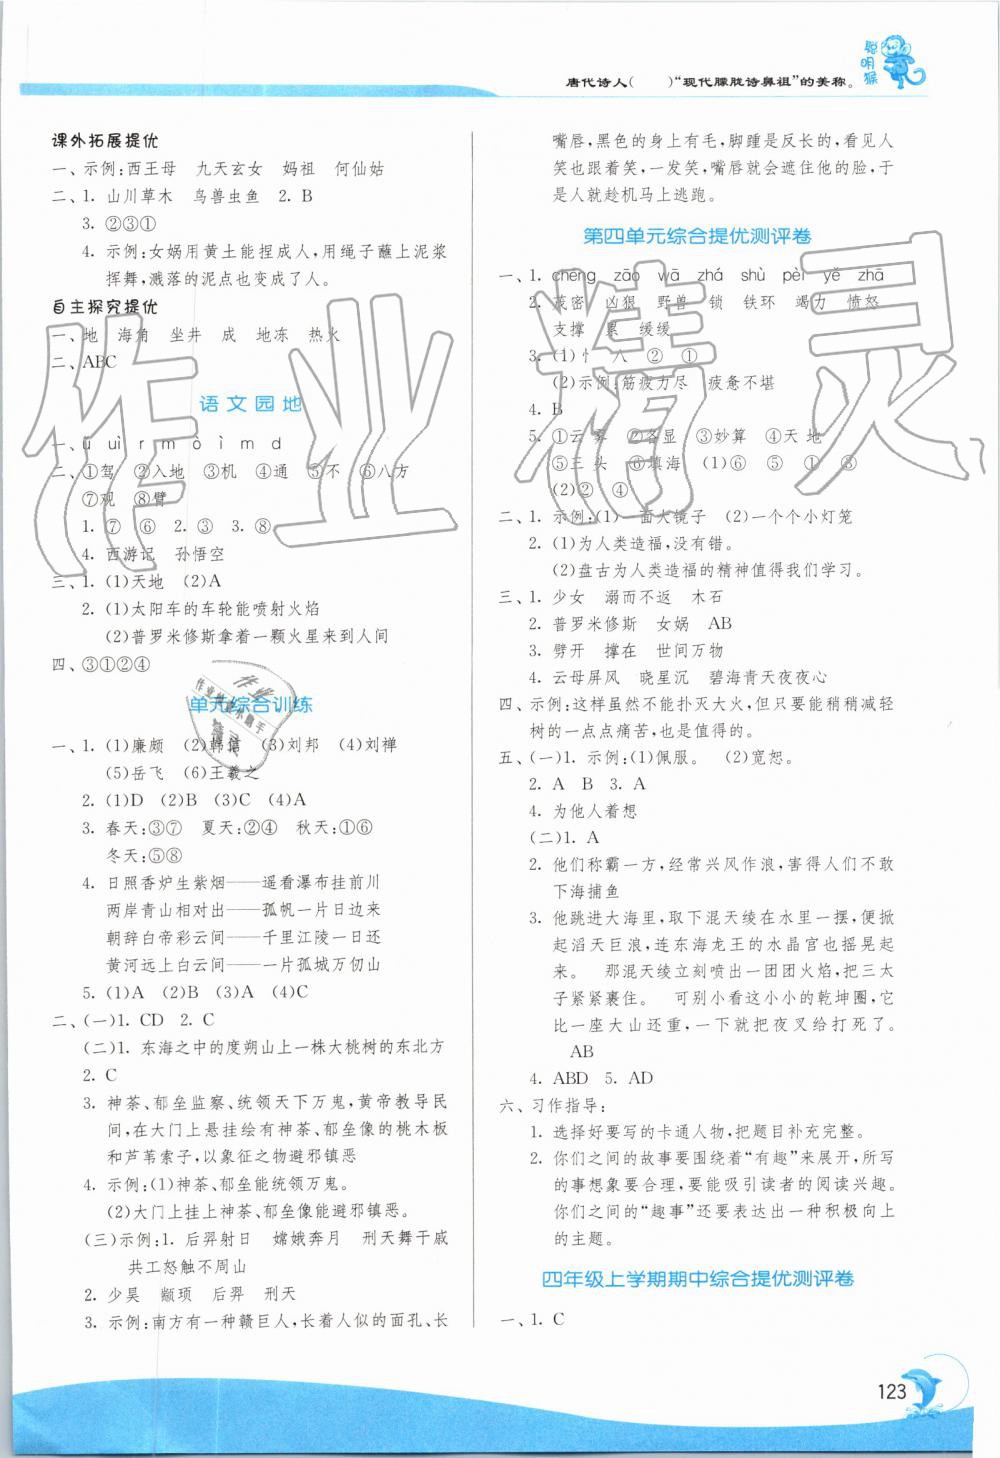 聪明猴
唐代诗人(　　)“现代朦胧诗鼻祖”的美称。
课外拓展提优
一、示例:西王母　九天玄女　妈祖　何仙姑
二、1. 山川草木　鸟兽虫鱼　2. B
3. ②③①
4. 示例:女娲用黄土能捏成人、用绳子蘸上泥浆
挥舞,溅落的泥点也变成了人。
自主探究提优
一、地　海角　坐井　成　地冻　热火
二、ABC
语文园地
一、ū　uì　r　m　ò　ì　m　d
二、①驾　②入地　③机　④通　⑤不　⑥八方
⑦观　⑧臂
1. ⑦　⑥　2. ③　3. ⑧
4. 西游记　孙悟空
三、1. (1)天地　(2)A
2. (1)太阳车的车轮能喷射火焰
(2)普罗米修斯拿着一颗火星来到人间
四、③①②④
单元综合训练
一、1. (1)廉颇　(2)韩信　(3)刘邦　(4)刘禅
(5)岳飞　(6)王羲之
2. (1)D　(2)B　(3)C　(4)A
3. 春天:③⑦　夏天:②④　秋天:①⑥
冬天:⑤⑧
4. 日照香炉生紫烟——遥看瀑布挂前川
两岸青山相对出——孤帆一片日边来
朝辞白帝彩云间——千里江陵一日还
黄河远上白云间——一片孤城万仞山
5. (1)A　(2)B　(3)A　(4)C
二、(一)1. CD　2. C
(二)1. 东海之中的度朔山上一株大桃树的东北方
2. C
3. 神荼、郁垒监察、统领天下万鬼,黄帝教导民
间,在大门上悬挂绘有神荼、郁垒像的桃木板
和芦苇索子,以象征之物避邪镇恶
4. 示例:(1)神荼、郁垒能统领万鬼。
(2)大门上挂上神荼、郁垒像能避邪镇恶。
(三)示例:1. 后羿射日　嫦娥奔月　刑天舞干戚
共工怒触不周山
2. 少昊　颛顼　后羿　刑天
3. 示例:南方有一种赣巨人,长着人似的面孔、长
嘴唇,黑色的身上有毛,脚踵是反长的,看见人
笑也跟着笑,一发笑,嘴唇就会遮住他的脸,于
是人就趁机马上逃跑。
第四单元综合提优测评卷
一、1. chēng　zāo　wā　zhá　shù　pèi　yě　zhā
2. 茂密　凶狠　野兽　锁　铁环　竭力　愤怒
支撑　累　缓缓
3. (1)忄　八　②　①
(2)示例:筋疲力尽　疲惫不堪
4. B
5. ①云　雾　②各显　③妙算　④天　地
⑤三　头　⑥填海　(1)⑥　⑤　①　③
(2)②　④
二、1. 示例:(1)一面大镜子　(2)一个个小灯笼
2. (1)为人类造福,没有错。
(2)盘古为人类造福的精神值得我们学习。
三、1. 少女　溺而不返　木石
2. 普罗米修斯　女娲　AB
3. 劈开　撑在　世间万物
4. 云母屏风　晓星沉　碧海青天夜夜心
四、示例:这样虽然不能扑灭大火,但只要能减轻
树的一点点痛苦,也是值得的。
五、(一)1. 示例:(1)佩服。　(2)宽恕。
2. A　B　3. A
4. 为他人着想
(二)1. A
2. 他们称霸一方,经常兴风作浪,害得人们不敢
下海捕鱼
3. 他跳进大海里,取下混天绫在水里一摆,便掀
起滔天巨浪,连东海龙王的水晶宫也摇晃起
来。　那混天绫立刻喷出一团团火焰,把三太
子紧紧裹住。　可别小看这小小的乾坤圈,它
比一座大山还重,一下子就把夜叉给打死了。
AB
4. ABD　5. AD
六、习作指导:
1. 选择好要写的卡通人物,把题目补充完整。
2. 你们之间的故事要围绕着“有趣”来展开,所写
的事想象要合理,要能吸引读者的阅读兴趣。
你们之间的“趣事”还要表达出一种积极向上
的主题。
四年级上学期期中综合提优测评卷
一、1. C
123
作业精灵